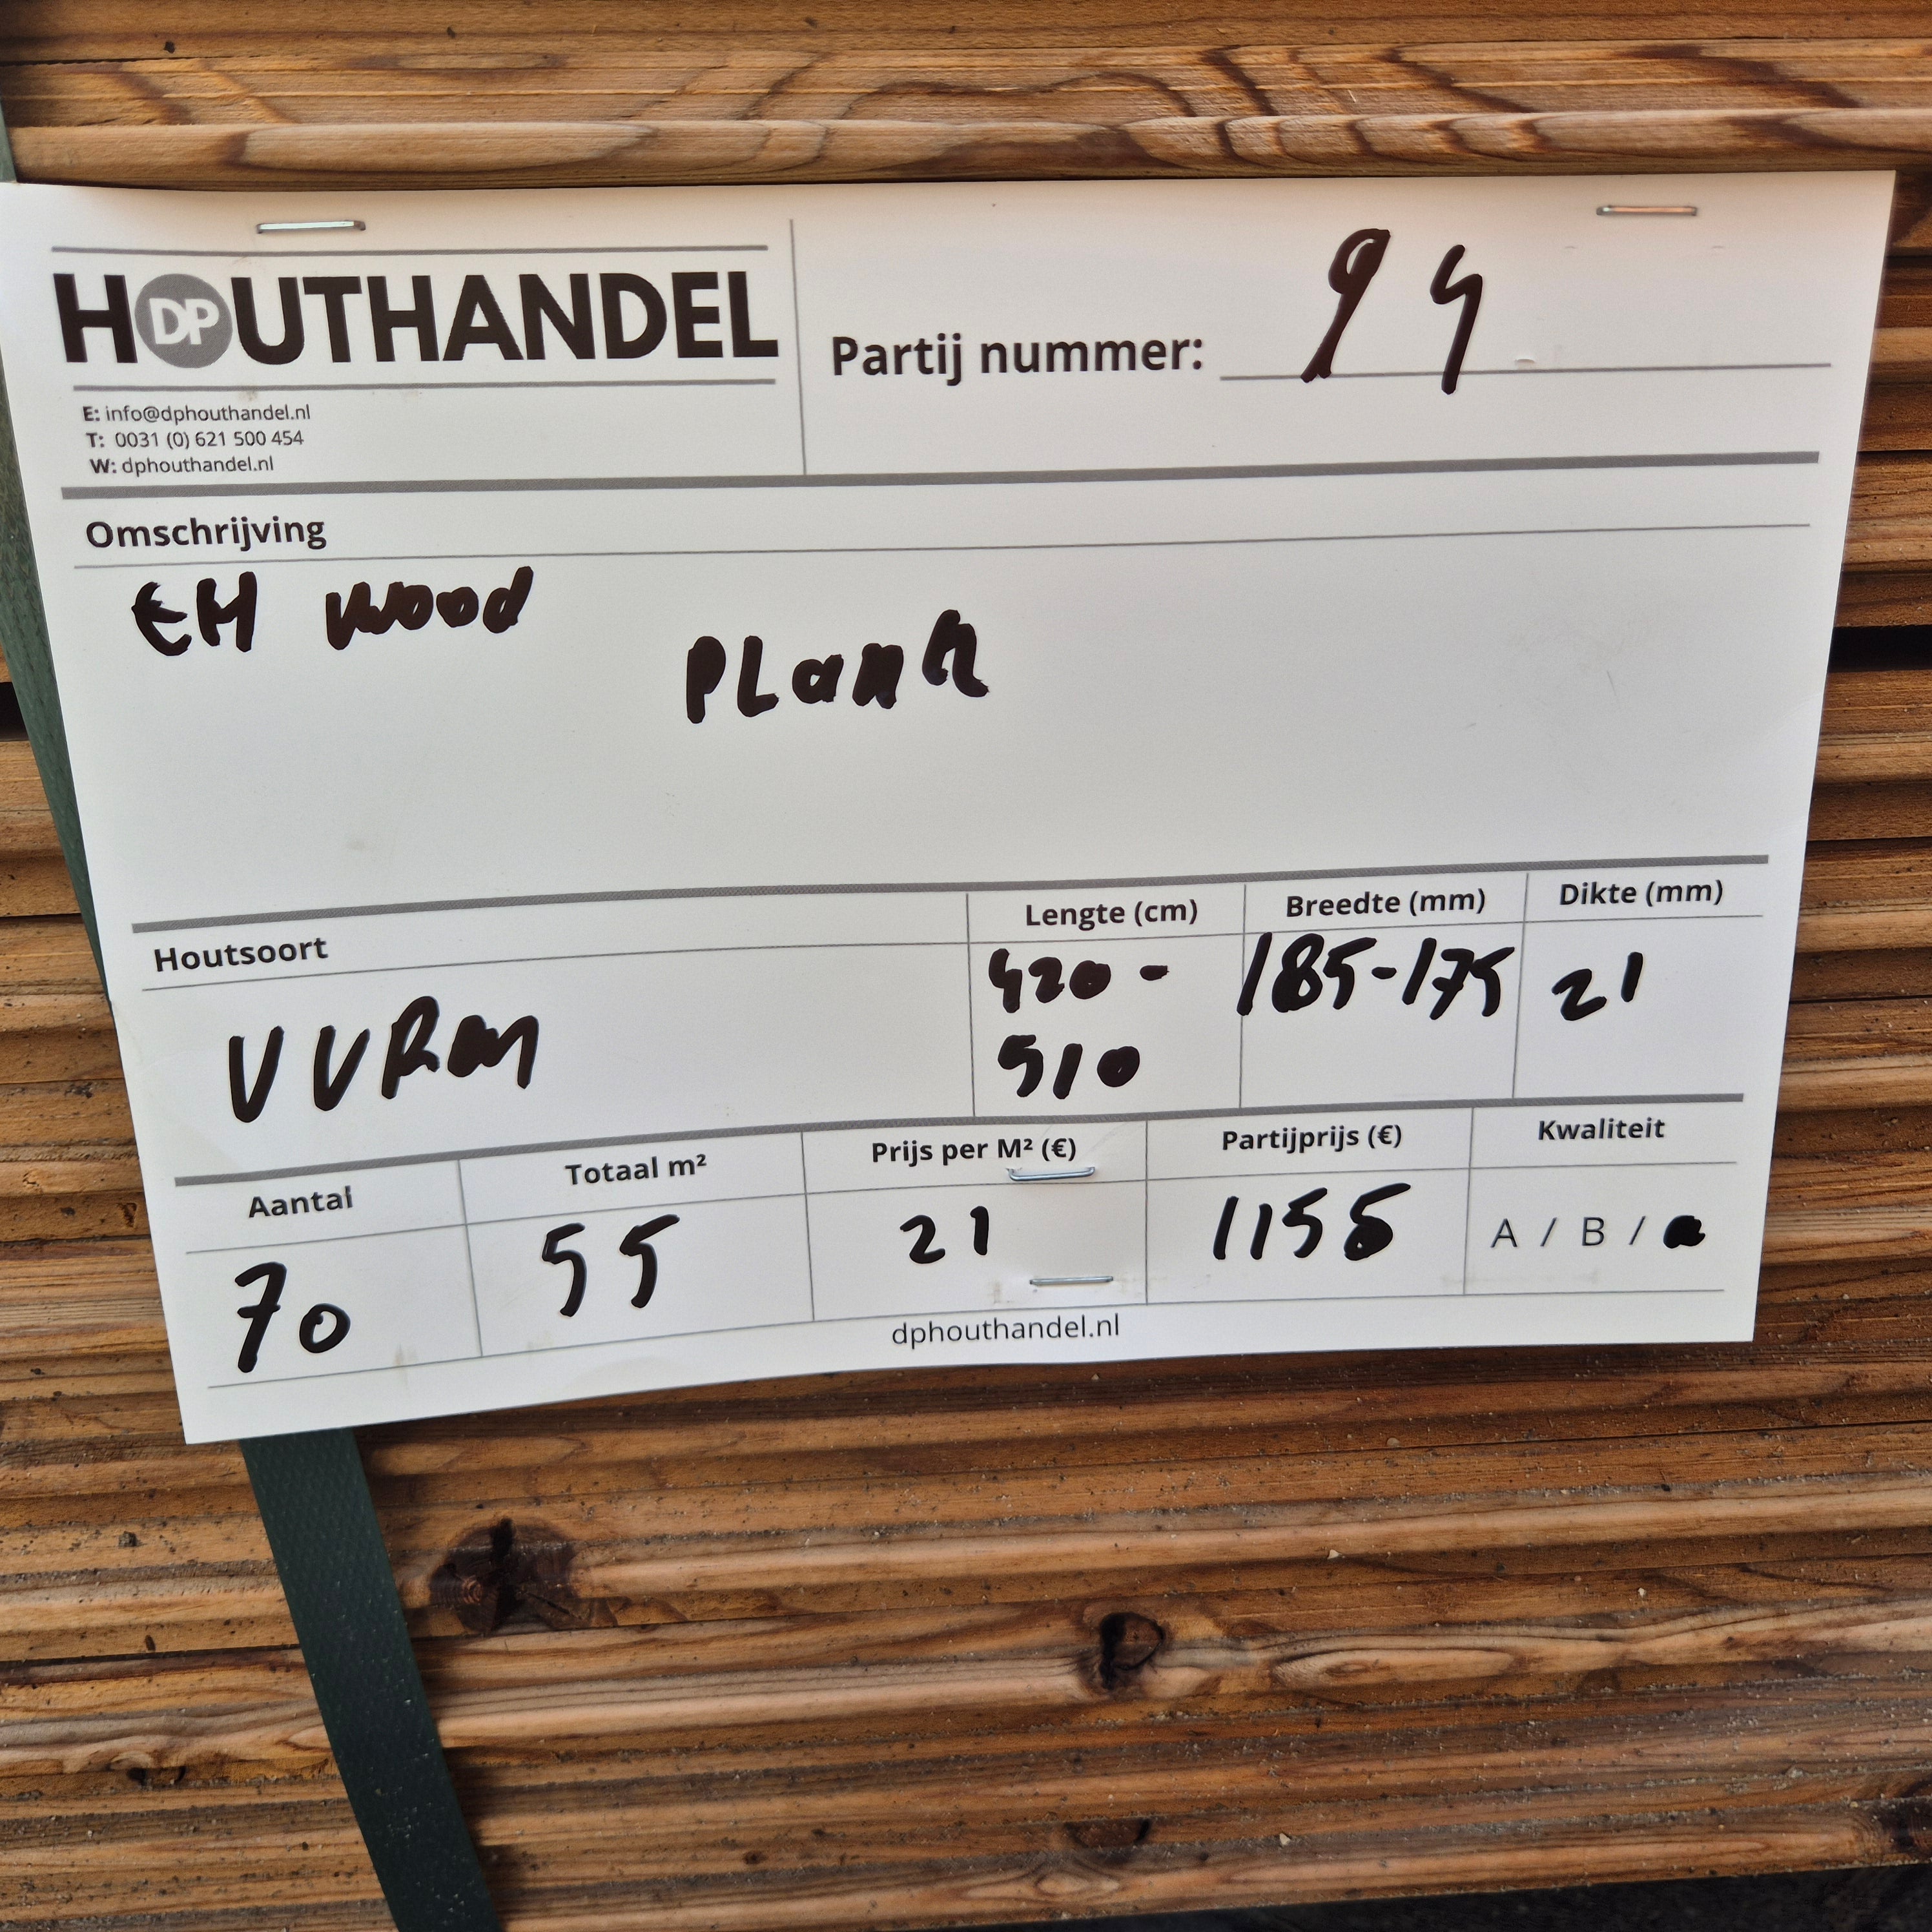 HOUTHANDEL
DP
E: info@dphouthandel.nl
T: 0031 (0) 621 500 454
W: dphouthandel.nl
Partij nummer: 94
Omschrijving
EH wood
PLank
Houtsoort
Lengte (cm)
Breedte (mm)
Dikte (mm)
VURen
420 -
510
185-175
21
Aantal
Totaal m²
Prijs per M² (€)
Partijprijs (€)
Kwaliteit
70
55
21
1155
A / B /
dphouthandel.nl